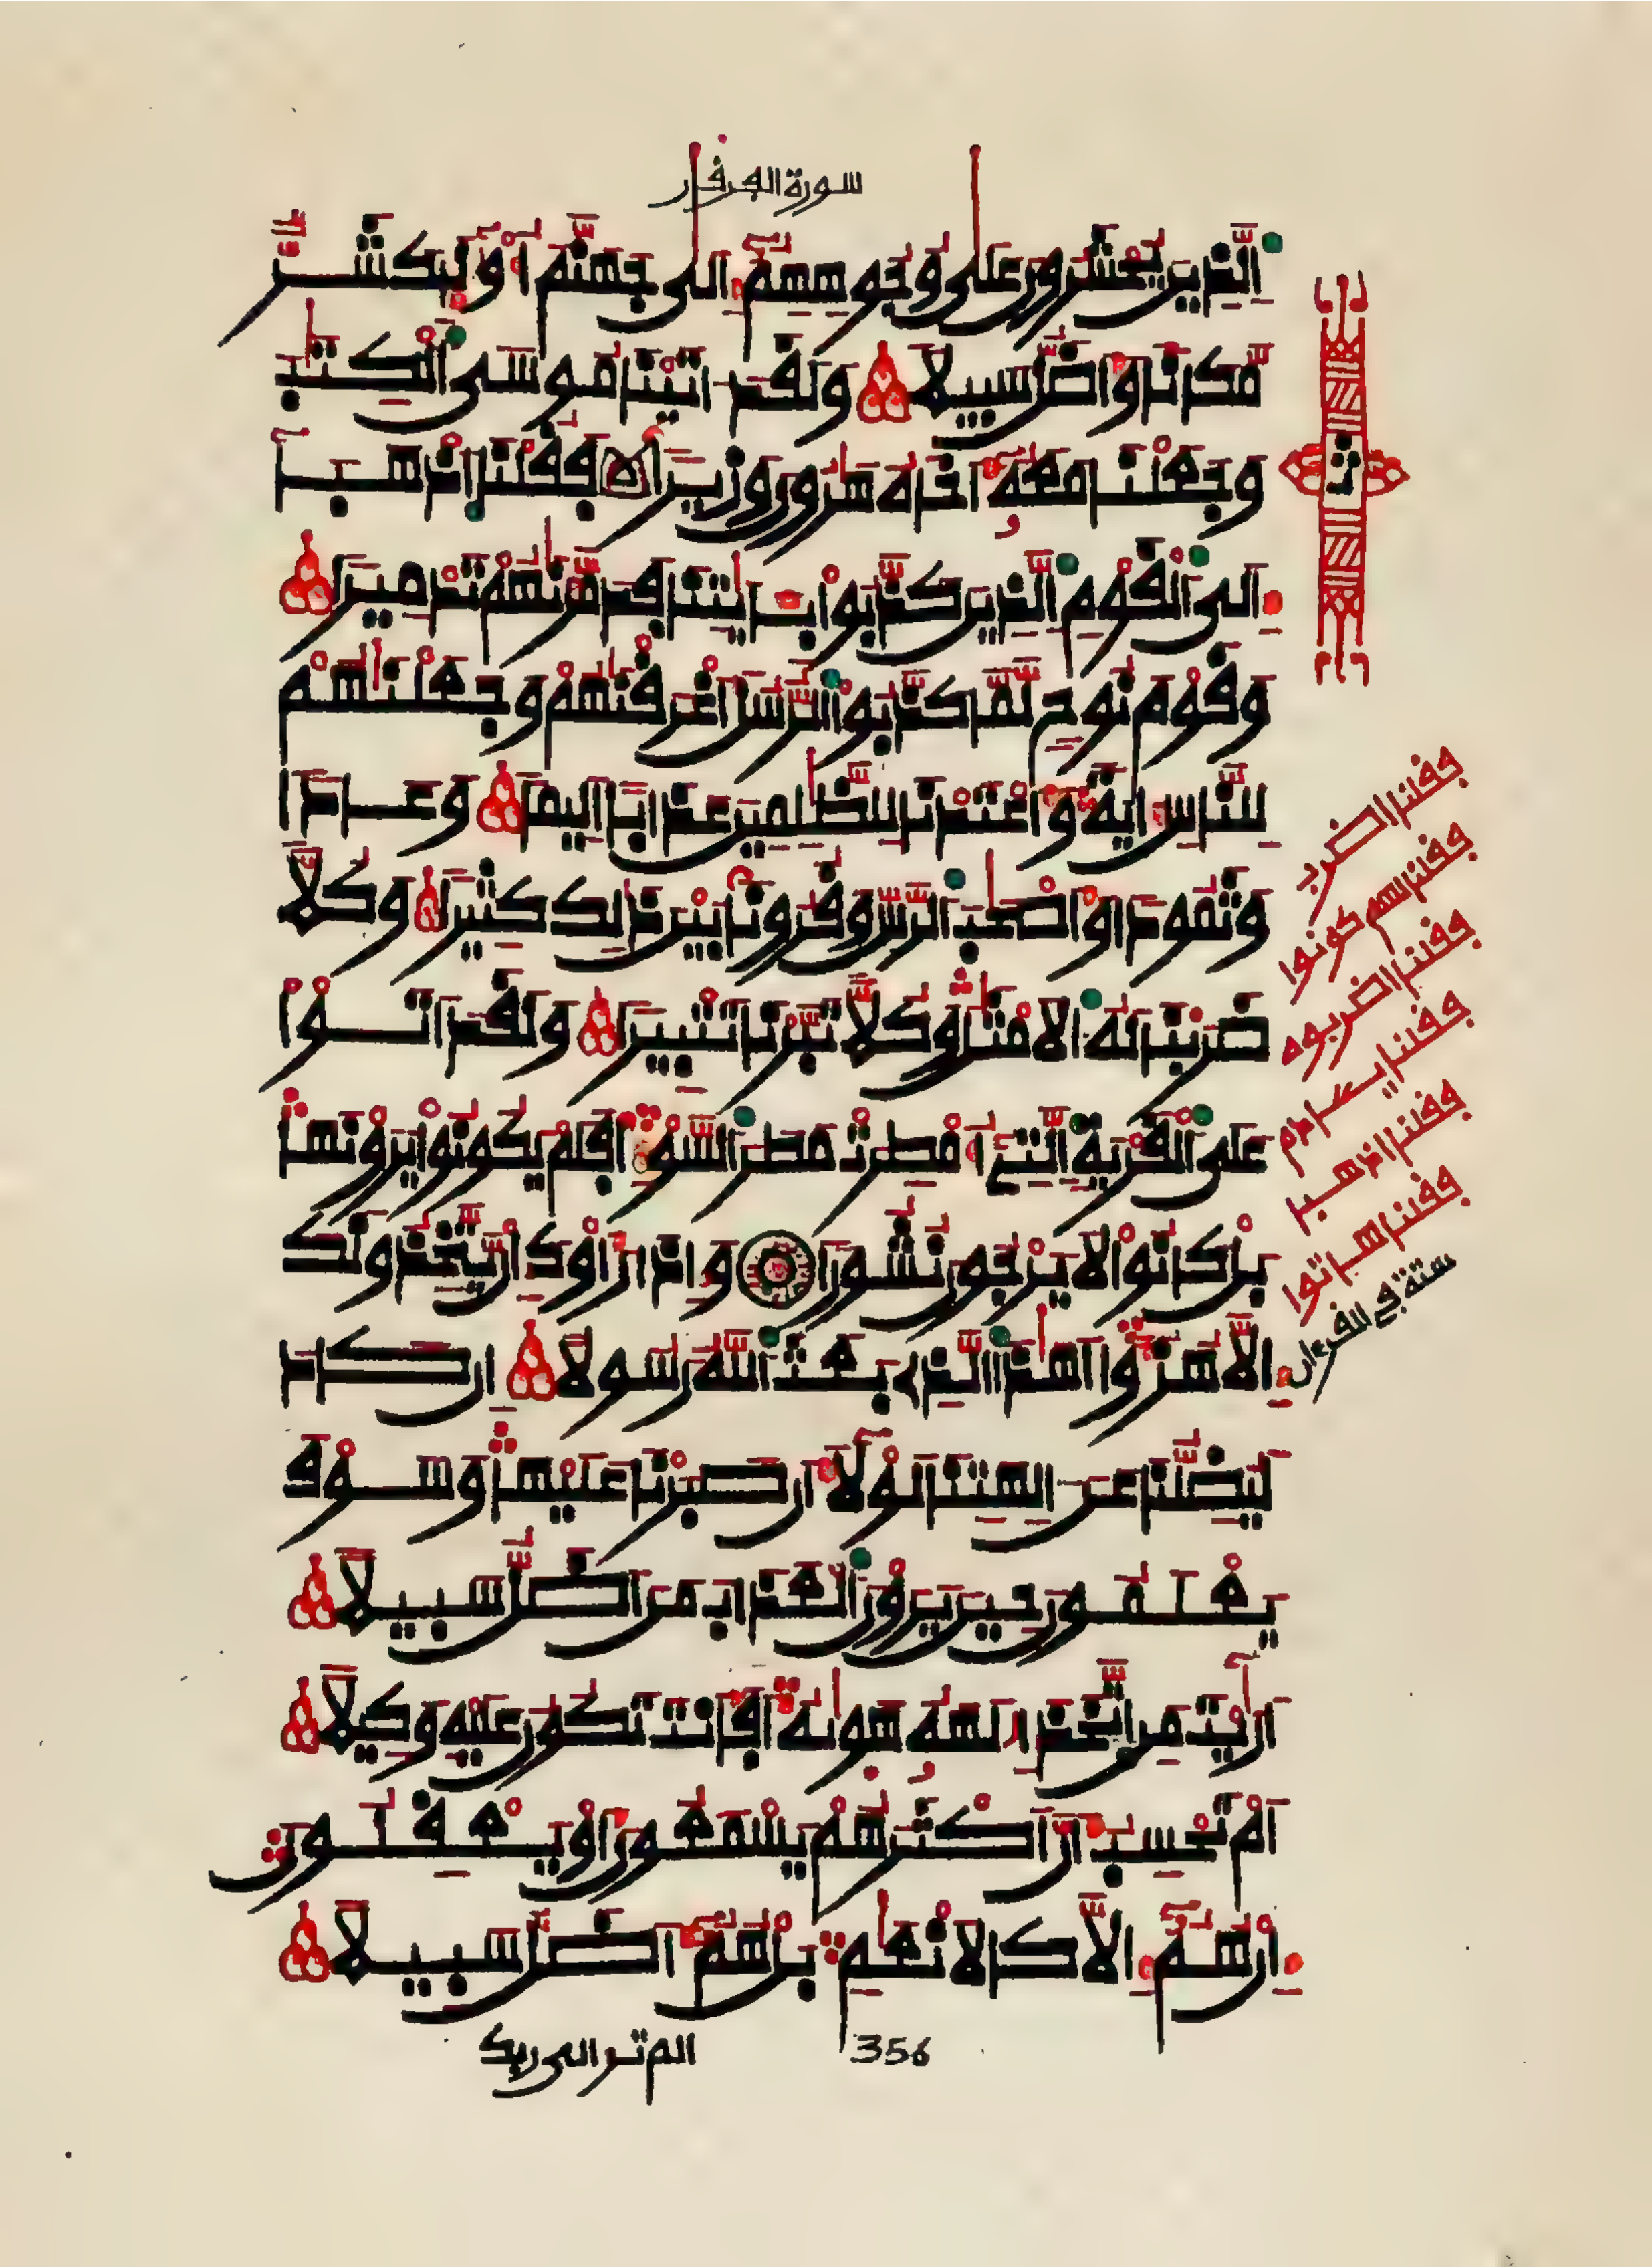 سورة الفرقان
الذين يحشرون على وجوههم إلى جهنم أوليك شر
مكانا وأضل سبيلا ولقد اتينا موسى الكتب
وجعلنا معه أخاه هرون وزيرا فقلنا اذهبا
إلى القوم الذين كذبوا بايتنا فدمرنهم تدميرا
وقوم نوح لما كذبوا الرسل أغرقنهم وجعلنهم
للناس اية وأعتدنا للظلمين عذابا اليما وعادا
وثمودا وأصحب الرس وقرونا بين ذلك كثيرا وكلا
ضربنا له الامثل وكلا تبرنا تتبيرا ولقد اتوا
على القرية التي أمطرت مطر السوء أفلم يكونوا يرونها
بل كانوا لا يرجون نشورا وإذا رأوك إن يتخذونك
إلا هزؤا أهذا الذي بعث الله رسولا إن كاد
ليضلنا عن الهتنا لولا أن صبرنا عليها وسوف
يعلمون حين يرون العذاب من اضل سبيلا
أريت من اتخذ إلهه هويه أفأنت تكون عليه وكيلا
أم تحسب أن أكثرهم يسمعون أو يعقلون
إن هم إلا كالانعم بل هم أضل سبيلا
فقلنا اضرب
فقلنا لهم كونوا
فقلنا اضربوه
فقلنا يادم
فقلنا اذهبا
فقلنا هاتوا
ستة في القرءان
356
الم تر الى ربك